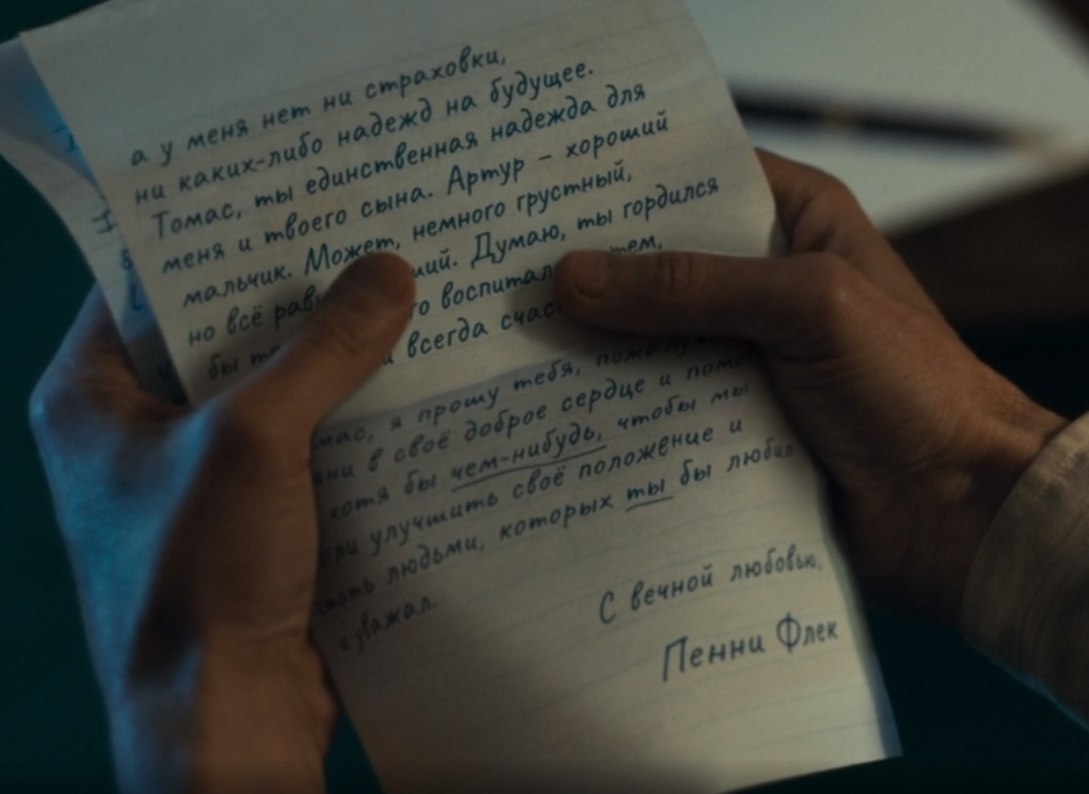 а у меня нет ни страховки,
ни каких-либо надежд на будущее.
Томас, ты единственная надежда для
меня и твоего сына. Артур – хороший
мальчик. Может, немного грустный,
но всё Думаю, ты гордился
бы воспитал
всегда
я прошу тебя,
в своё доброе сердце и
хотя бы чем-нибудь, чтобы мы
улучшить своё положение и
людьми, которых ты бы любил
и уважал.
С вечной любовью,
Пенни Флек